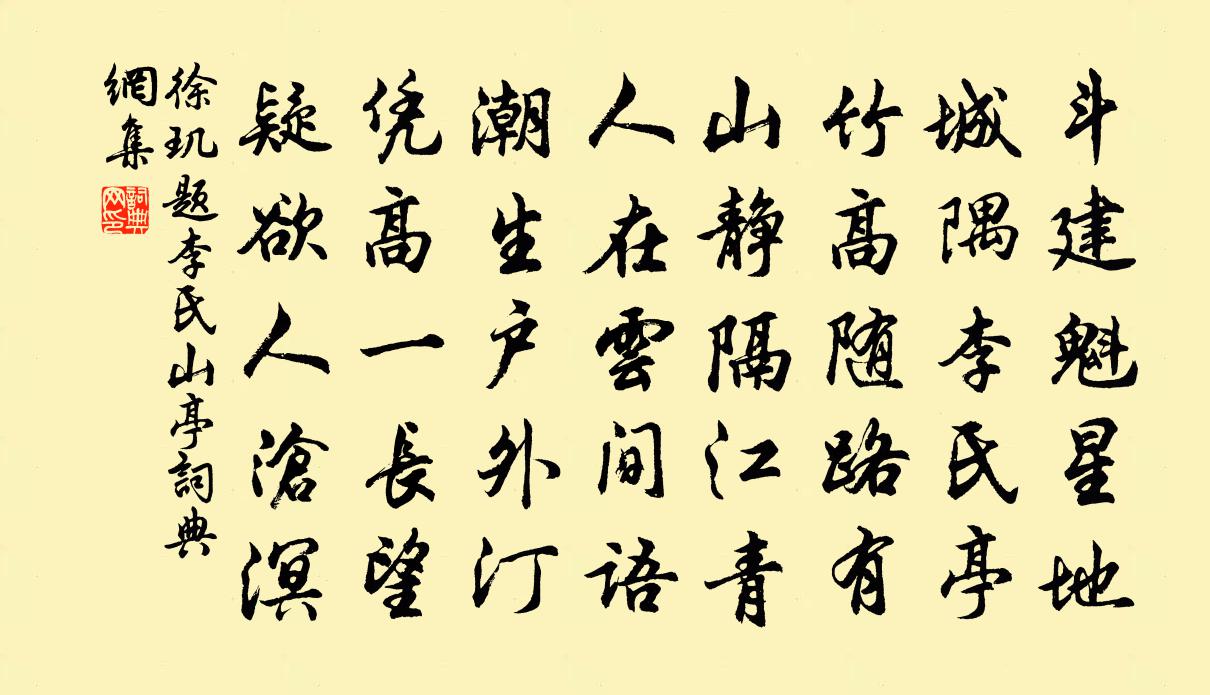 斗建魁星地
城隅李民亭
竹高随路有
山静隔江青
人在雲间语
潮生户外汀
凭高一長望
疑欲人滄溟
徐玑题李民山亭詞典
網集
詞典
网印